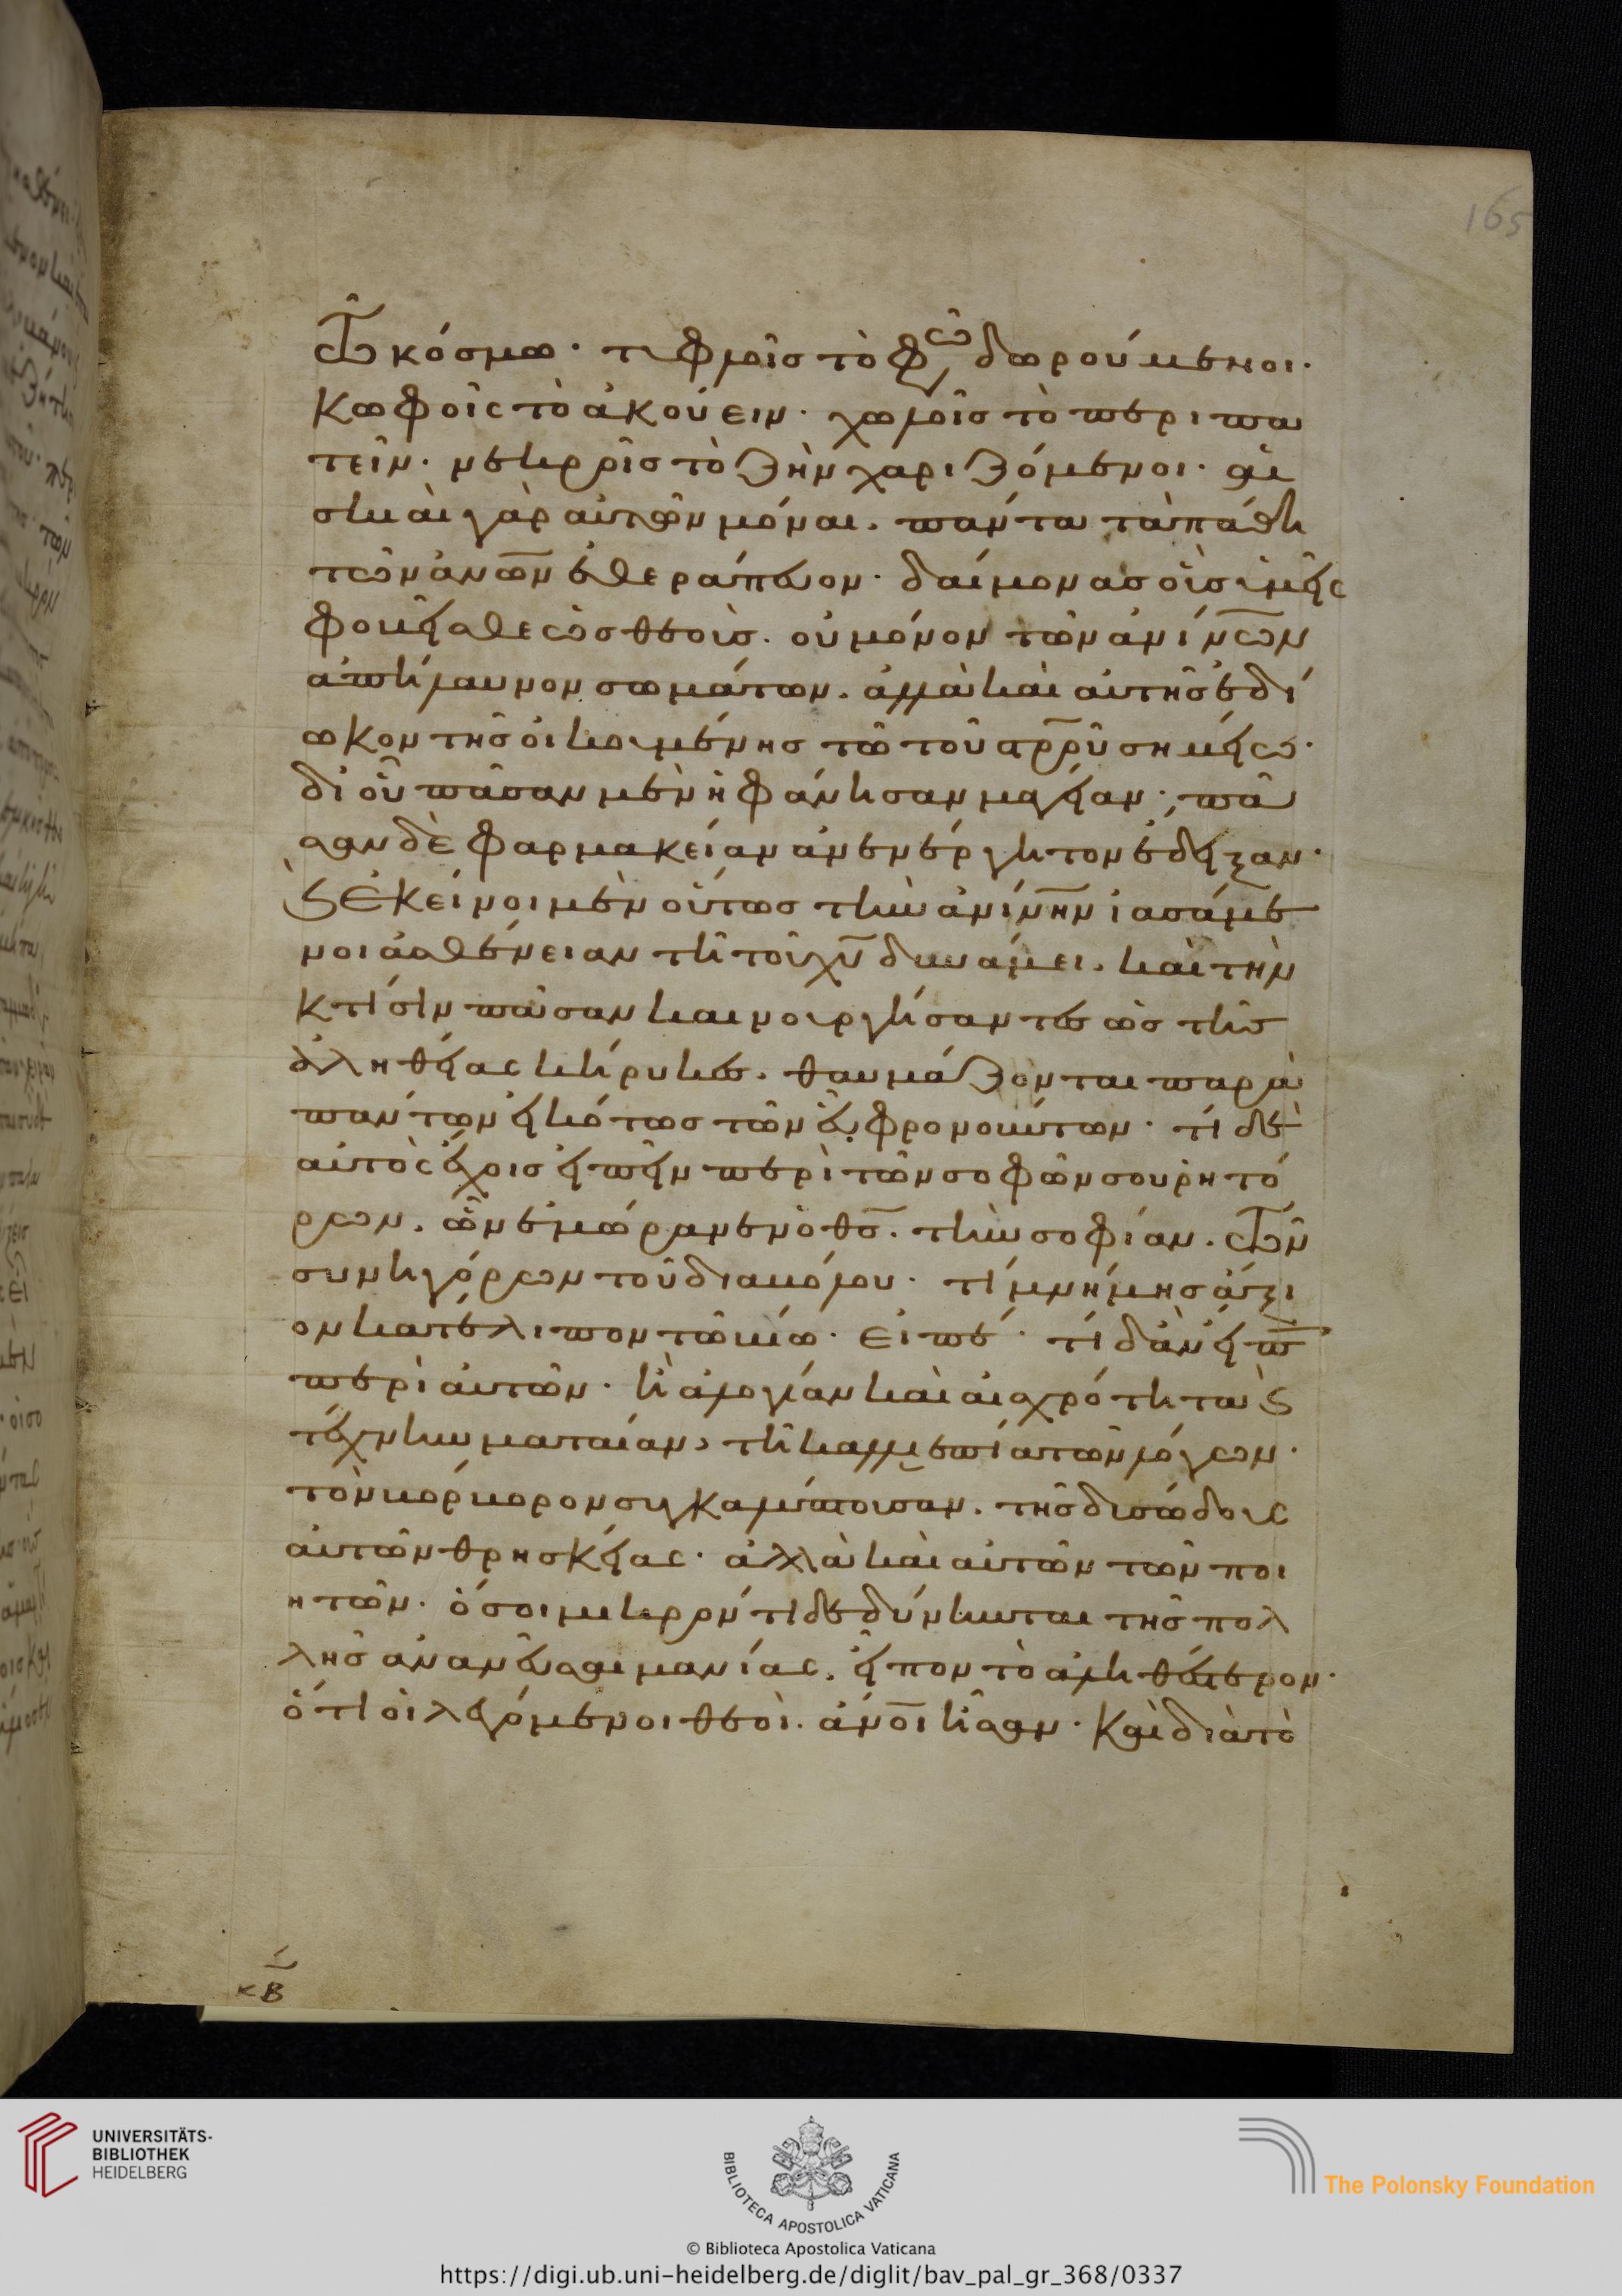 165
τῶ κόσμω· τυφλοῖς τὸ φῶς δωρούμενοι·
κωφοῖς τὸ ἀκούειν· χωλοῖς τὸ περιπα
τεῖν· νεκροῖς τὸ ζῆν χαριζόμενοι· αἱ
σκιαὶ γὰρ αὐτῶν μόναι. πάντα τὰ πάθη
τῶν ἀνῶν ἐθεράπευον· δαίμονας οὓς ὑμεῖς
φοβεῖσθε ὡς θεούς. οὐ μόνον τῶν ἀνίνων
ἀπήλαυνον σωμάτων. ἀλλὰ καὶ αὐτῆς ἐδί
ωκον τῆς οἰκουμένης τῶ τοῦ σρροῦ σημείω·
δι οὗ πᾶσαν μὲν ἠφάνησαν μαγείαν· πᾶ
σαν δὲ φαρμακείαν ἀνενέργητον ἔδειξαν·
καὶ ἐκεῖνοι μὲν οὕτως τὴν ἀνίνην ἰασάμε
νοι ἀσθένειαν τῆ τοῦ χυ δυνάμει. καὶ τὴν
κτίσιν πᾶσαν καινουργήσαντες ὡς τῆς
ἀληθείας κήρυκες. θαυμάζονται παρὰ
πάντων εἰκότως τῶν εὖ φρονούντων· τί δὲ
αὐτὸς ἔχοις εἰπεῖν περὶ τῶν σοφῶν σου ῥητό
ρων. ὧν ἐμώρανεν ὁ θς. τὴν σοφίαν. τῶν
συνηγόρων τοῦ διαβόλου· τί μνήμης ἄξι
ον κατέλιπον τῶ βίω· εἰπέ· τί δ' ἂν εἴπης
περὶ αὐτῶν· ἢ ἀλογίαν καὶ αἰσχρότητα καὶ
τέχνην ματαίαν, τῆ καλλιεπία τῶν λόγων·
τὸν βόρβορον συγκαλύπτουσαν. τῆς δυσώδους
αὐτῶν θρησκείας· ἀλλὰ καὶ αὐτῶν τῶν ποι
ητῶν· ὅσοι μικρόν τι δεδύνηνται τῆς πολ
λῆς ἀνανεῦσαι μανίας. εἶπον τὸ ἀληθέστερον·
ὅτι οἱ λεγόμενοι θεοὶ. ἄνοι ἦσαν· καὶ διὰ τὸ
κβ
UNIVERSITÄTS-
BIBLIOTHEK
HEIDELBERG
BIBLIOTECA APOSTOLICA VATICANA
The Polonsky Foundation
© Biblioteca Apostolica Vaticana
https://digi.ub.uni-heidelberg.de/diglit/bav_pal_gr_368/0337